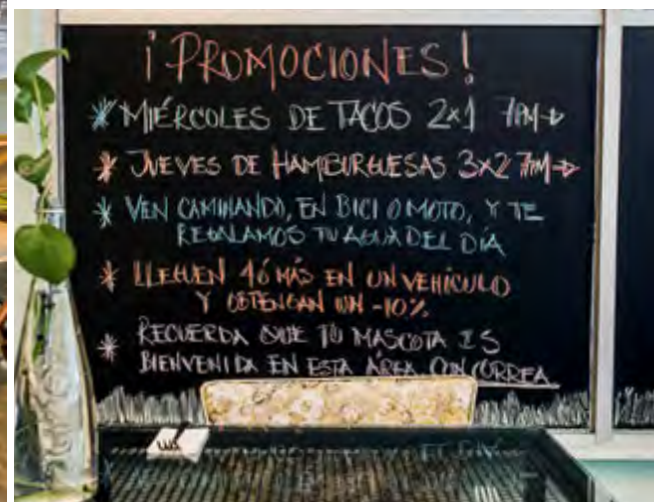 ¡PROMOCIONES!
* MIÉRCOLES DE TACOS 2x1 7PM→
* JUEVES DE HAMBURGUESAS 3x2 7PM→
* VEN CAMINANDO, EN BICI O MOTO, Y TE
REGALAMOS TU AGUA DEL DÍA
* LLEGUEN 4 Ó MÁS EN UN VEHÍCULO
Y OBTENGAN UN -10%
* RECUERDA QUE TU MASCOTA ES
BIENVENIDA EN ESTA ÁREA CON CORREA